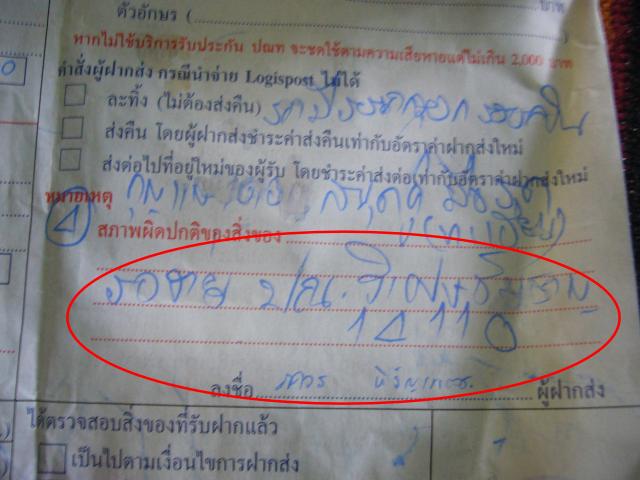 ตัวอักษร (
บาท
)
หากไม่ใช้บริการรับประกัน ปณท จะชดใช้ตามความเสียหายแต่ไม่เกิน 2,000 บาท
คำสั่งผู้ฝากส่ง กรณีนำจ่าย Logispost ไม่ได้
ละทิ้ง (ไม่ต้องส่งคืน)
ส่งคืน โดยผู้ฝากส่งชำระค่าส่งคืนเท่ากับอัตราค่าฝากส่งใหม่
ส่งต่อไปที่อยู่ใหม่ของผู้รับ โดยชำระค่าส่งต่อเท่ากับอัตราค่าฝากส่งใหม่
หมายเหตุ
สภาพผิดปกติของสิ่งของ
รอจ่าย ปณ. วิเศษชัยชาญ
14110
ลงชื่อ ผู้ฝากส่ง
ได้ตรวจสอบสิ่งของที่รับฝากแล้ว
เป็นไปตามเงื่อนไขการฝากส่ง